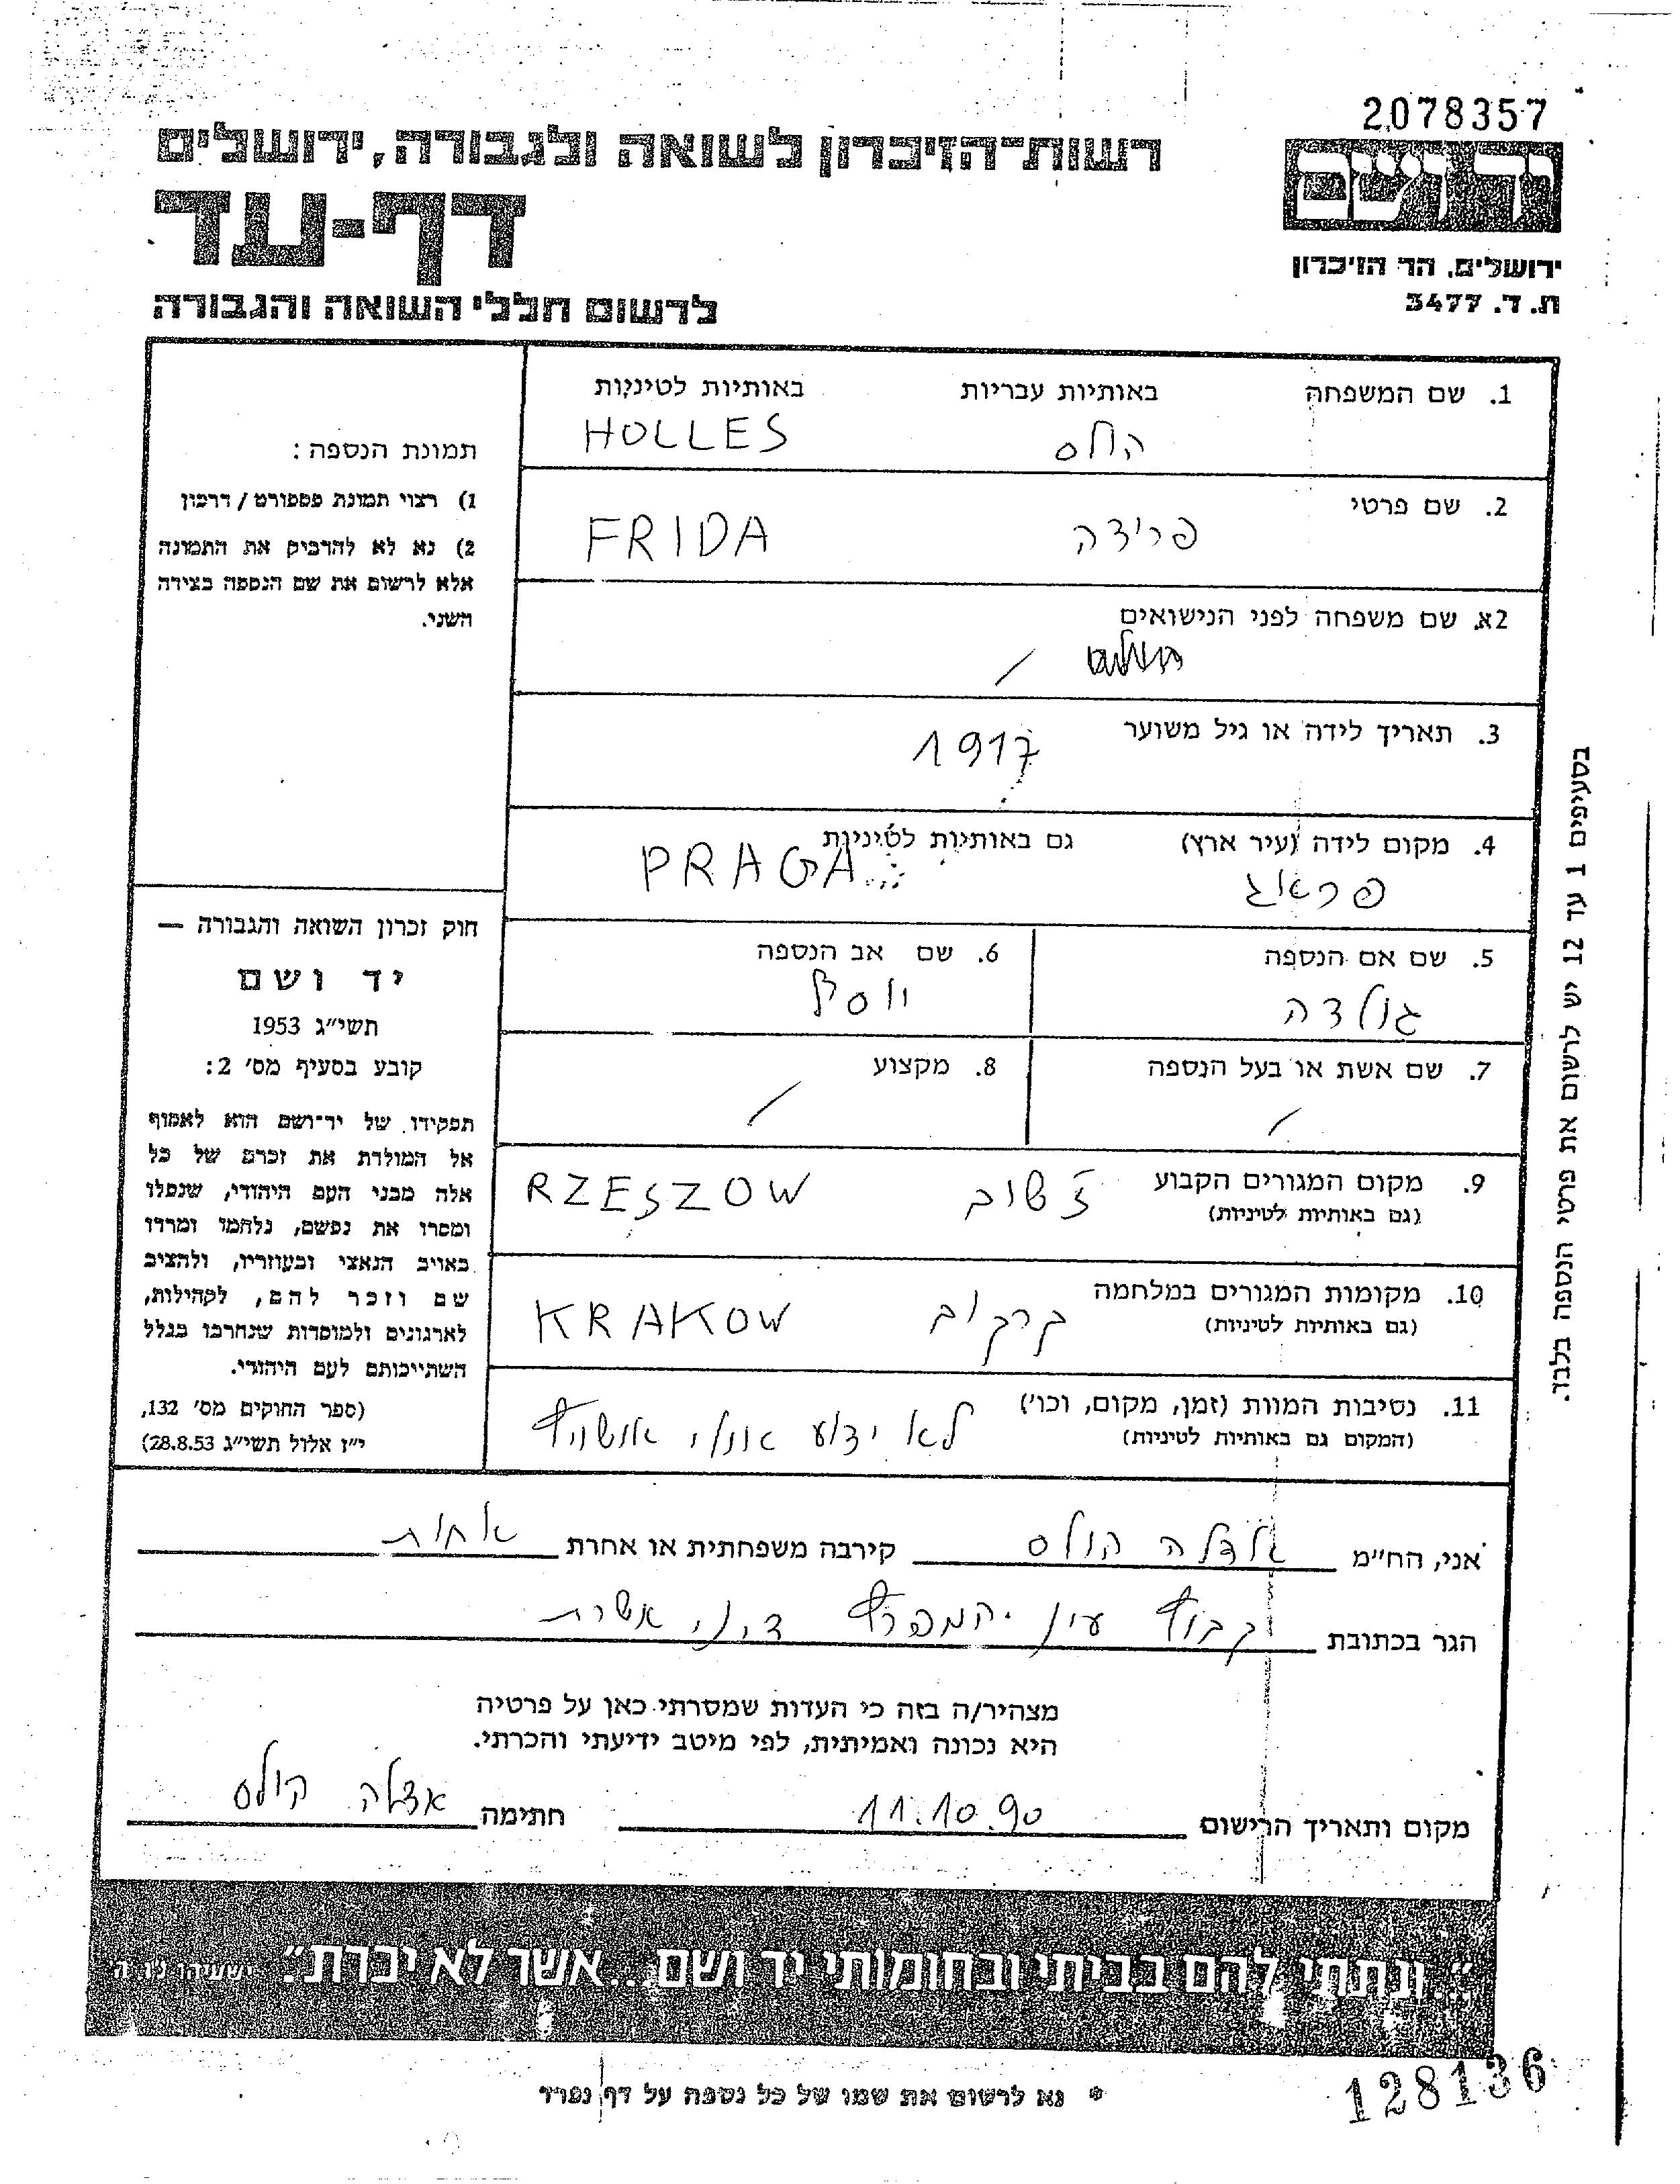 2078357
רשות-הזיכרון לשואה ולגבורה, ירושלים
יד ושם
דף-עד
ירושלים, הר הזיכרון
ת. ד. 3477
לרשום חללי השואה והגבורה
1. שם המשפחה באותיות עבריות באותיות לטיניות
הולס HOLLES
2. שם פרטי
פרידה FRIDA
2א. שם משפחה לפני הנישואים
/
3. תאריך לידה או גיל משוער
1917
4. מקום לידה (עיר ארץ) גם באותיות לטיניות
פראג PRAGA
5. שם אם הנספה
גולדה
6. שם אב הנספה
יוסף
7. שם אשת או בעל הנספה
/
8. מקצוע
/
9. מקום המגורים הקבוע
(גם באותיות לטיניות)
ז'שוב RZESZOW
10. מקומות המגורים במלחמה
(גם באותיות לטיניות)
קרקוב KRAKOW
11. נסיבות המוות (זמן, מקום, וכו')
(המקום גם באותיות לטיניות)
לא ידוע אולי אושויץ
תמונת הנספה:
1) רצוי תמונת פספורט/דרכון
2) נא לא להדביק את התמונה
אלא לרשום את שם הנספה בצידה
השני.
חוק זכרון השואה והגבורה —
יד ושם
תשי"ג 1953
קובע בסעיף מס' 2:
תפקידו של יד-ושם הוא לאסוף
אל המולדת את זכרם של כל
אלה מבני העם היהודי, שנפלו
ומסרו את נפשם, נלחמו ומרדו
באויב הנאצי ובעוזריו, ולהציב
שם וזכר להם, לקהילות,
לארגונים ולמוסדות שנחרבו בגלל
השתייכותם לעם היהודי.
(ספר החוקים מס' 132,
י"ז אלול תשי"ג 28.8.53)
בסעיפים 1 עד 12 יש לרשום את פרטי הנספה בלבד.
אני, הח"מ הולס קירבה משפחתית או אחרת אחות
הגר בכתובת קבוץ עין המפרץ ד.נ. אשרת
מצהיר/ה בזה כי העדות שמסרתי כאן על פרטיה
היא נכונה ואמיתית, לפי מיטב ידיעתי והכרתי.
מקום ותאריך הרישום 11.10.90 חתימה הולס
"...ונתתי להם בביתי ובחומותי יד ושם...אשר לא יכרת." ישעיהו נו ה
* נא לרשום את שמו של כל נספה על דף נפרד
128136